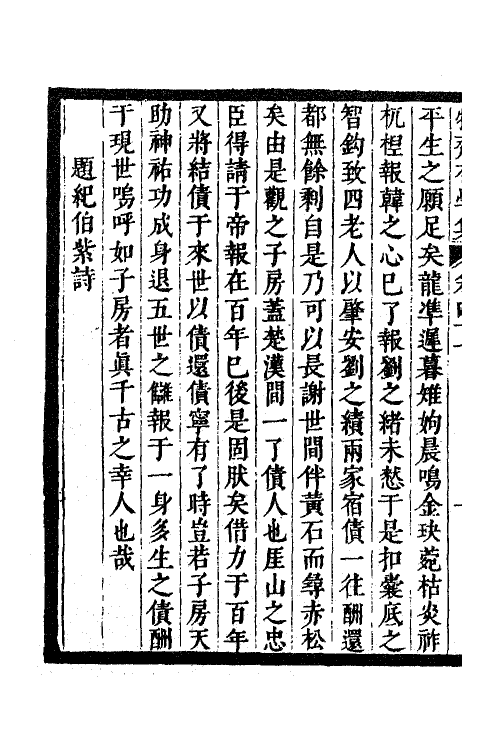 平生之願足矣龍準遲暮雉姁晨鳴金玦菀枯炎祚
杌桯報韓之心巳了報劉之緒未愁于是扣囊底之
智鈎致四老人以肇安劉之績兩家宿債一往酬還
都無餘剩自是乃可以長謝世間伴黃石而尋赤松
矣由是觀之子房蓋楚漢間一了債人也厓山之忠
臣得請于帝報在百年巳後是固肰矣借力于百年
又將結債于來世以債還債寧有了時豈若子房天
助神祐功成身退五世之讎報于一身多生之債酬
于現世嗚呼如子房者眞千古之幸人也哉
題紀伯紫詩